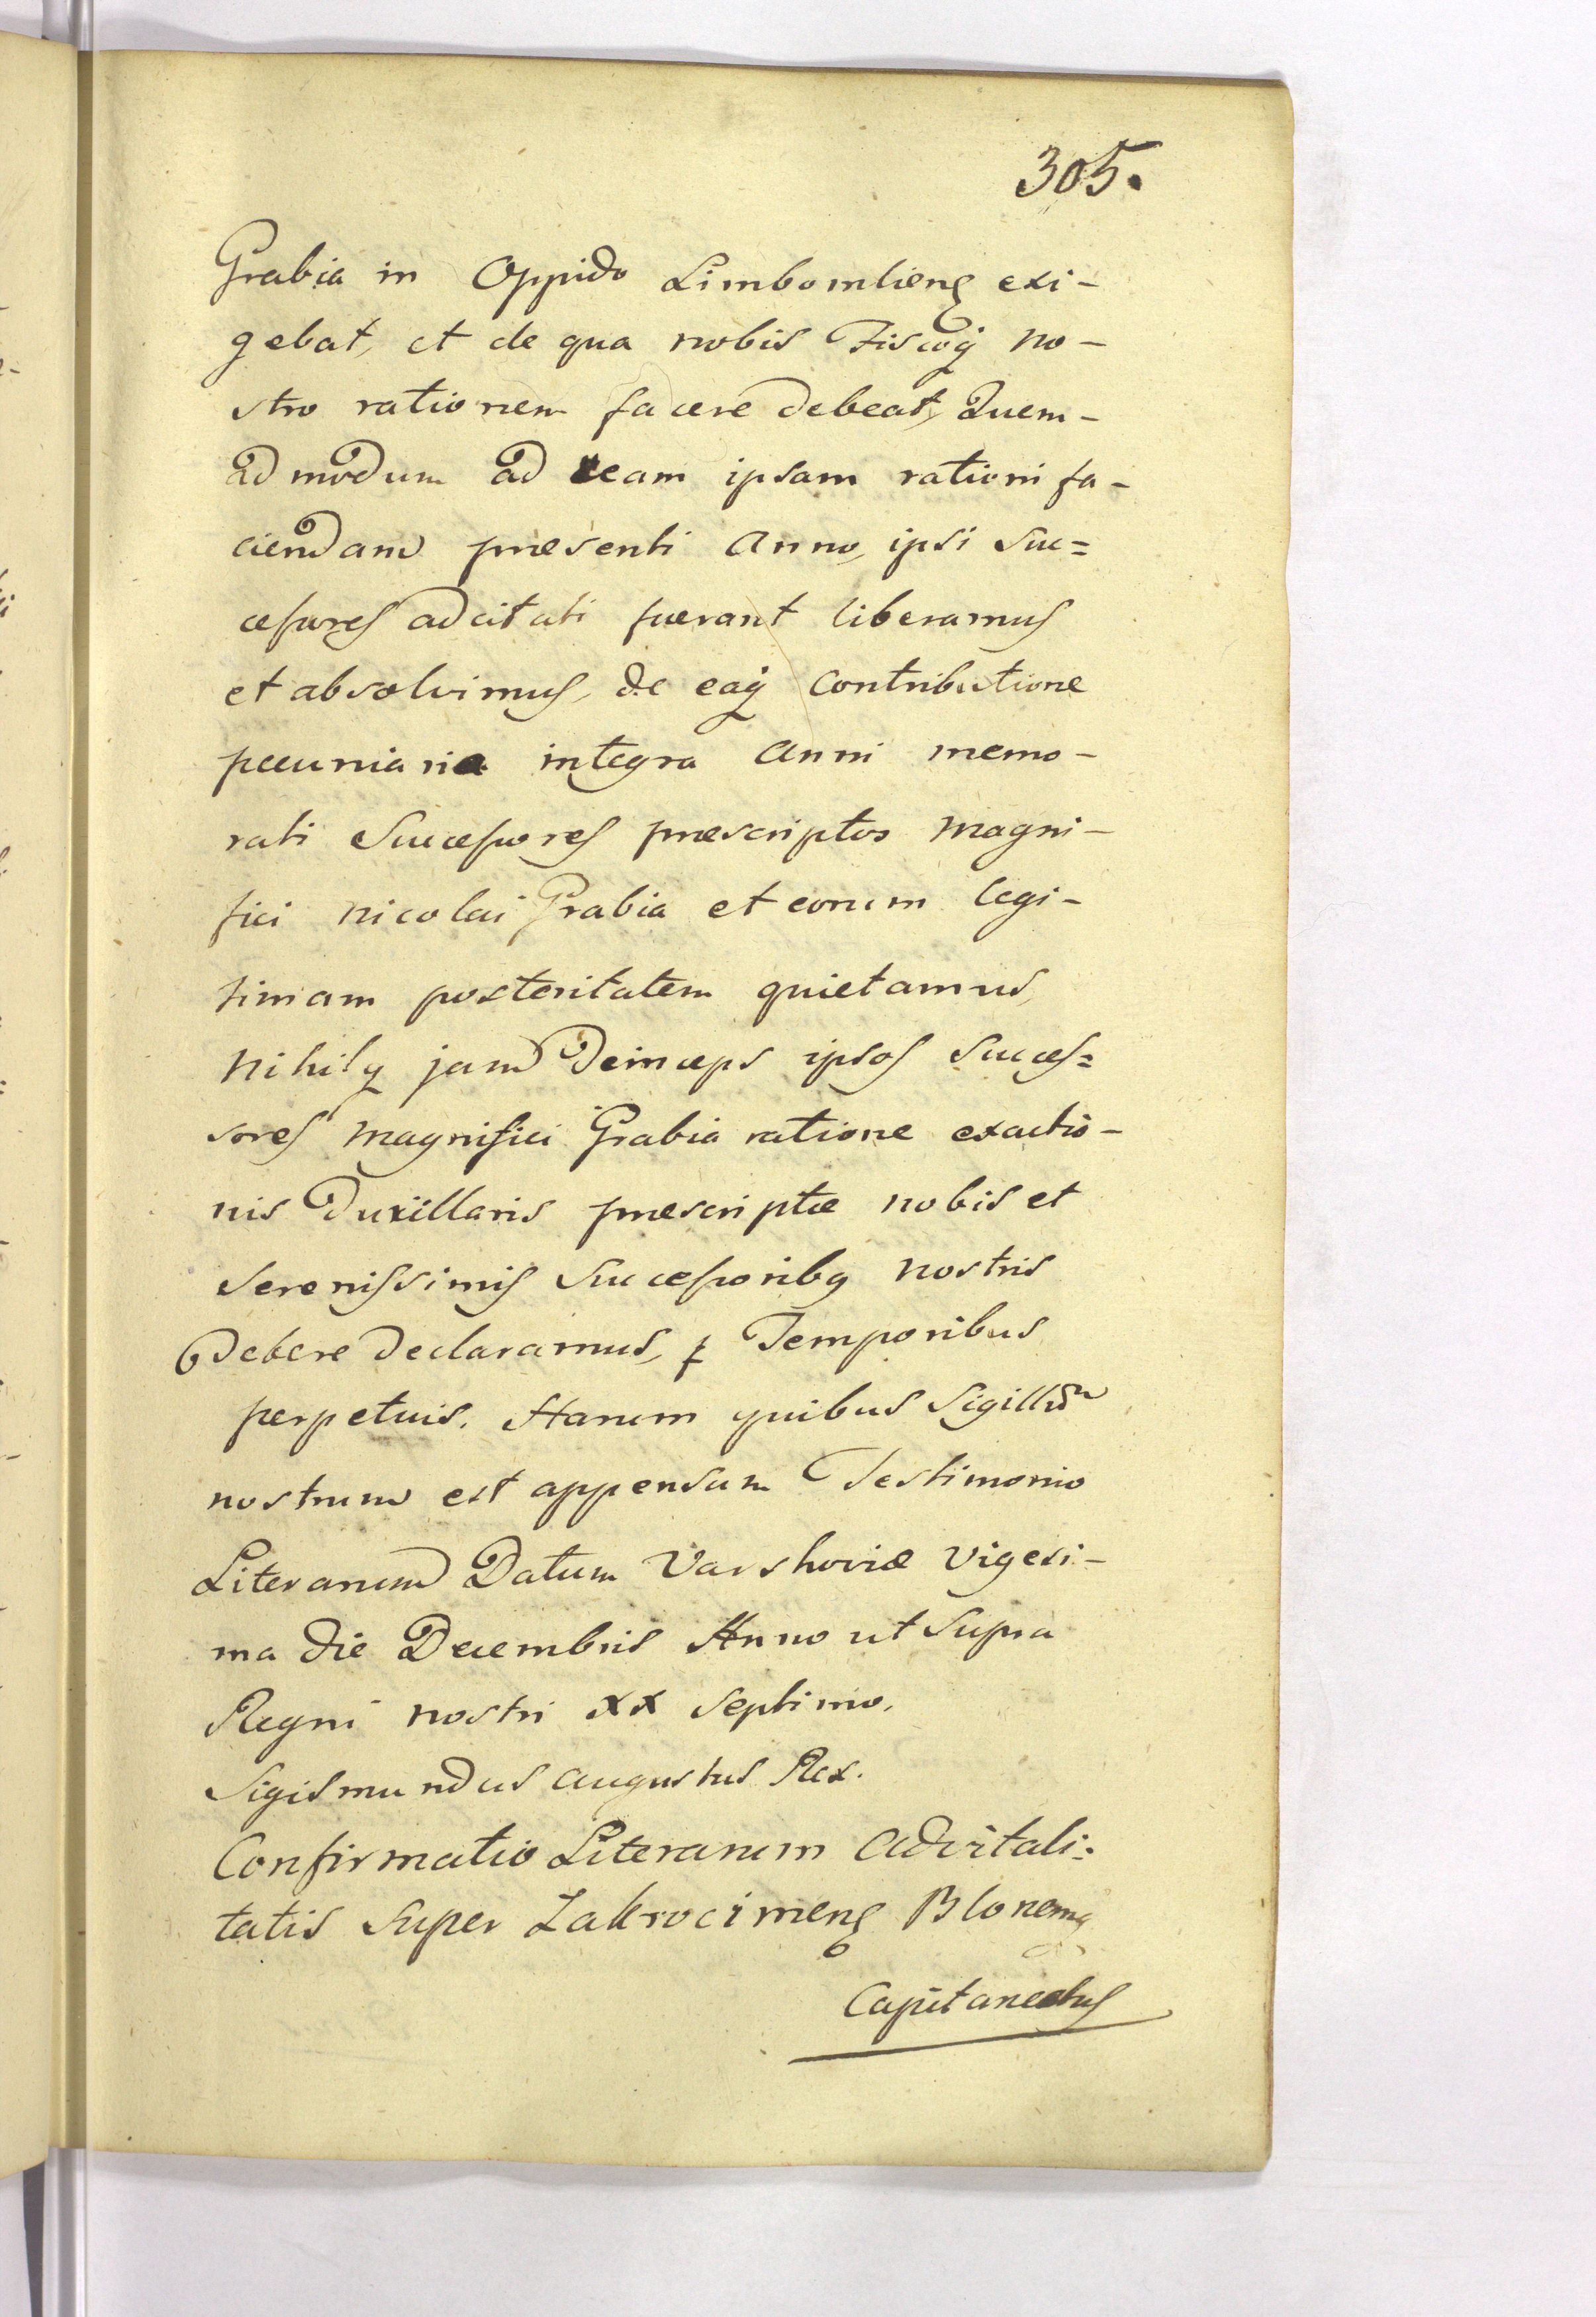 305.
Grabia in Oppido Limbomlien̄ exi-
gebat, et de qua nobis Fiscoq̃ no-
stro rationem facere debeat, Quem-
ad modum ad eam ipsam rationi fa-
ciendam præsenti Anno, ipsi suc=
cessores adcitati fuerant liberamus
et absolvimus, de eaq̃ contributione
pecuniaria integra Anni memo-
rati Successores præscriptos Magni-
fici Nicolai Grabia et eorum legi-
timam posteritatem quietamus,
Nihilq jam deinceps ipsos Succes=
sores Magnifici Grabia ratione exactio-
nis Duxillaris præscriptæ nobis et
Serenissimis Successoribq nostris
debere declaramus, ꝑ Temporibus
perpetuis. Harum quibus Sigillũ
nostrum est appensum Testimonio
Literarum Datum Varshoviæ Vigesi-
ma die Decembris Anno ut Supra
Regni nostri XX Septimo.
Sigismundus Augustus Rex.
Confirmatio Literarum Advitali=
tatis super Zakrocimen̄ Blonem̄
Capitaneatus